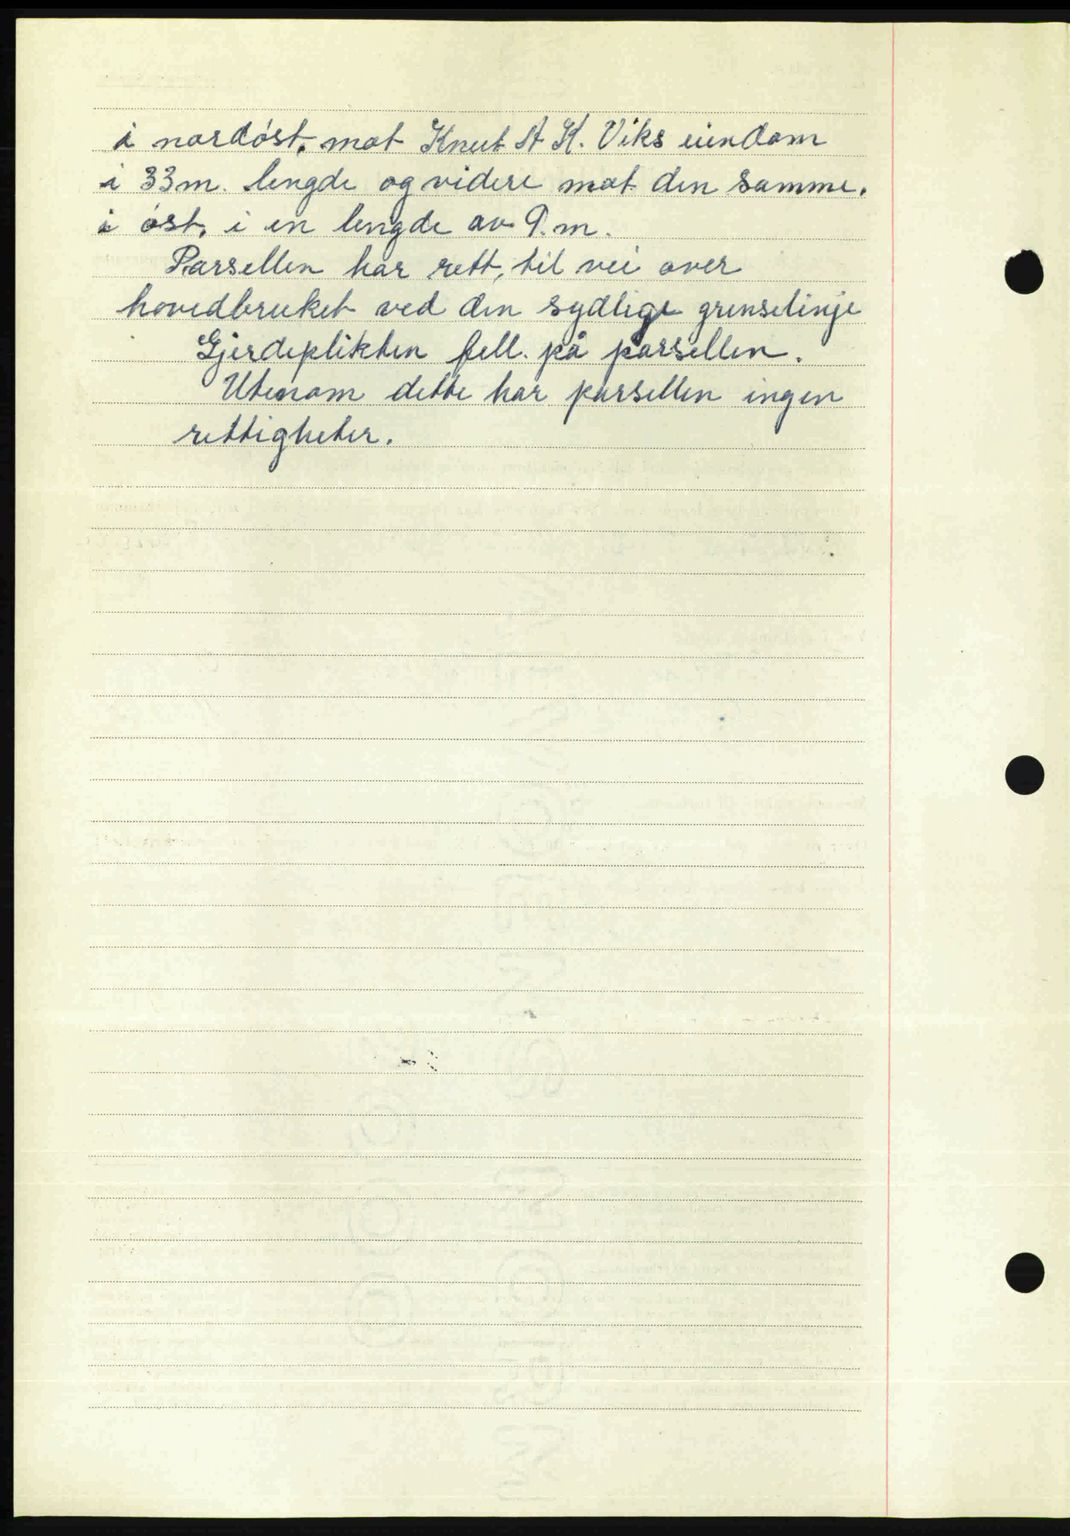 i nordøst, mot Knut A K. Viks eiendom
i 33 m. lengde og videre mot den samme.
i øst, i en lengde av 9. m.
Parsellen har rett, til vei over
hovedbruket ved den sydlige grenselinje
Gjerdeplikten fell. på parsellen.
Utenom dette har parsellen ingen
rettigheter.